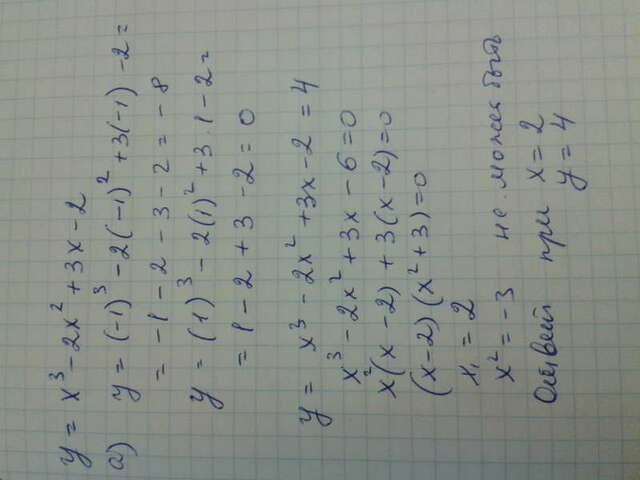 y = x³ - 2x² + 3x - 2
а) y = (-1)³ - 2(-1)² + 3(-1) - 2 =
= -1 - 2 - 3 - 2 = - 8
y = (1)³ - 2(1)² + 3·1 - 2 =
= 1 - 2 + 3 - 2 = 0
y = x³ - 2x² + 3x - 2 = 4
x³ - 2x² + 3x - 6 = 0
x²(x - 2) + 3(x - 2) = 0
(x - 2)(x² + 3) = 0
x₁ = 2
x² = -3 не может быть
Ответ при x = 2
y = 4